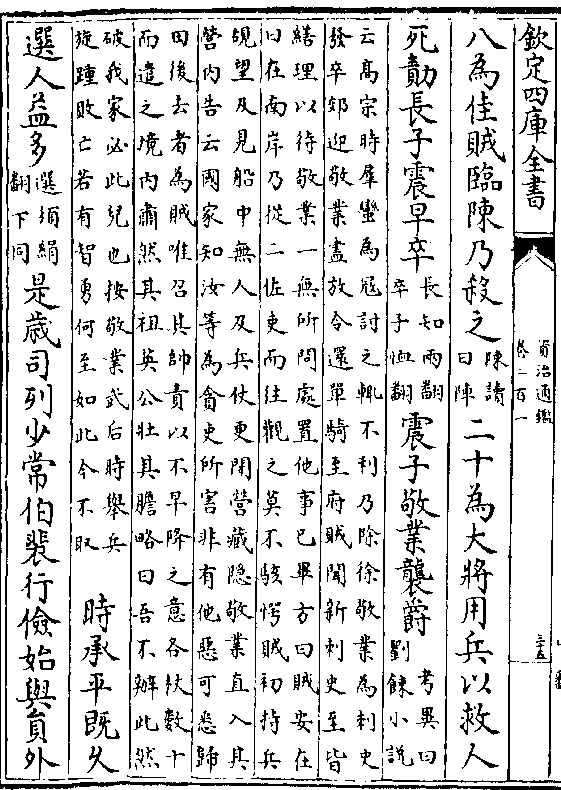 欽定四庫全書
資治通鑑
卷二百一
三五
八為佳賊臨陳乃殺之陳讀曰陣二十為大將用兵以救人
死勣長子震早卒長知兩翻卒子恤翻震子敬業襲爵考異曰劉餗小説
云高宗時羣蠻為冦討之輒不利乃除徐敬業為刺史
發卒郊迎敬業盡放令還單騎至府賊聞新刺史至皆
繕理以待敬業一無所問處置他事已畢方曰賊安在
曰在南岸乃從二佐吏而往觀之莫不駭愕賊初持兵
覘望及見船中無人及兵仗更閉營藏隠敬業直入其
營内告云國家知汝等為貪吏所害非有他惡可悉歸
田後去者為賊唯召其帥責以不早降之意各杖數十
而遣之境内肅然其祖英公壯其膽略曰吾不辦此然
破我家必此兒也按敬業武后時舉兵
旋踵敗亡若有智勇何至如此今不取
時承平既久
選人益多選須絹翻下同是歲司列少常伯裴行儉始與員外